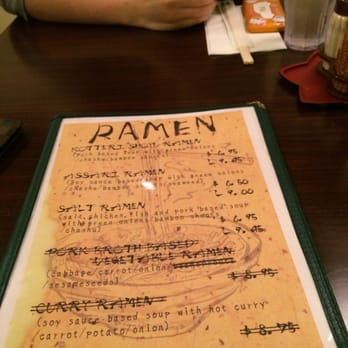 RAMEN
KOTTERI SHOYU RAMEN
(Pork based soup with green onions
/chashu/bamboo
$ 6.95
L 9.45
ASSARI RAMEN
(Soy sauce based with green onions
/chashu/bamboo and seaweed)
$ 6.50
L 9.00
SALT RAMEN
(salt, chicken, fish and pork "based" soup
with green onion/bamboo shoots
/chashu)
$ 6.95
L 9.45
PORK BROTH BASED
VEGETABLE RAMEN
(cabbage/carrot/onion/
/sesapeseeds)
$ 8.95
CURRY RAMEN
(soy sauce based soup with hot curry
carrot/potato/onion)
$ 8.95